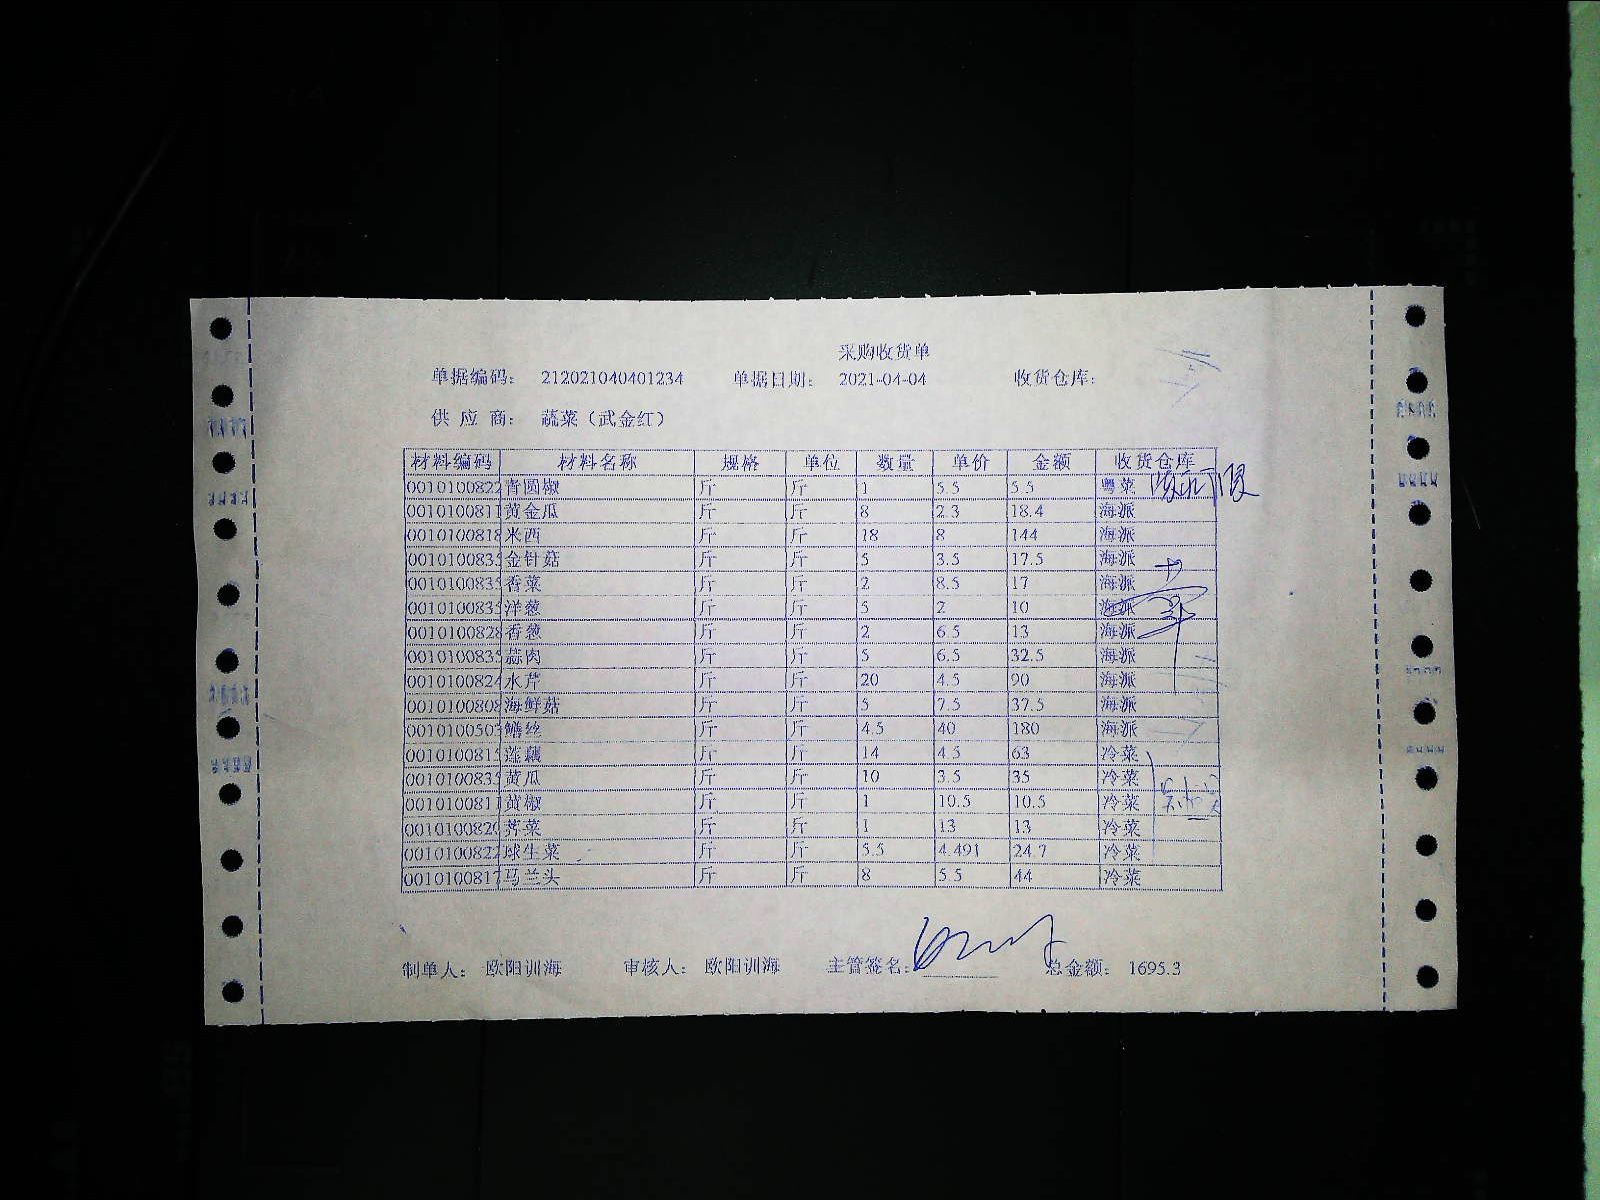 采购收货单
单据编码： 212021040401234 单据日期： 2021-04-04 收货仓库：
供 应 商： 蔬菜（武金红）
材料编码 材料名称 规格 单位 数量 单价 金额 收货仓库
0010100822 青圆椒 斤 斤 1 5.5 5.5 粤菜
0010100811 黄金瓜 斤 斤 8 2.3 18.4 海派
0010100818 米西 斤 斤 18 8 144 海派
001010083 金针菇 斤 斤 5 3.5 17.5 海派
001010083 香菜 斤 斤 2 8.5 17 海派
001010083 洋葱 斤 斤 5 2 10 海派
0010100828 香葱 斤 斤 2 6.5 13 海派
001010083 蒜肉 斤 斤 5 6.5 32.5 海派
0010100824 水芹 斤 斤 20 4.5 90 海派
0010100808 海鲜菇 斤 斤 5 7.5 37.5 海派
001010050 鳝丝 斤 斤 4.5 40 180 海派
001010081 莲藕 斤 斤 14 4.5 63 冷菜
001010083 黄瓜 斤 斤 10 3.5 35 冷菜
0010100811 黄椒 斤 斤 1 10.5 10.5 冷菜
001010082 荠菜 斤 斤 1 13 13 冷菜
0010100822 球生菜 斤 斤 5.5 4.491 24.7 冷菜
0010100817 马兰头 斤 斤 8 5.5 44 冷菜
制单人： 欧阳训海 审核人： 欧阳训海 主管签名： 总金额： 1695.3